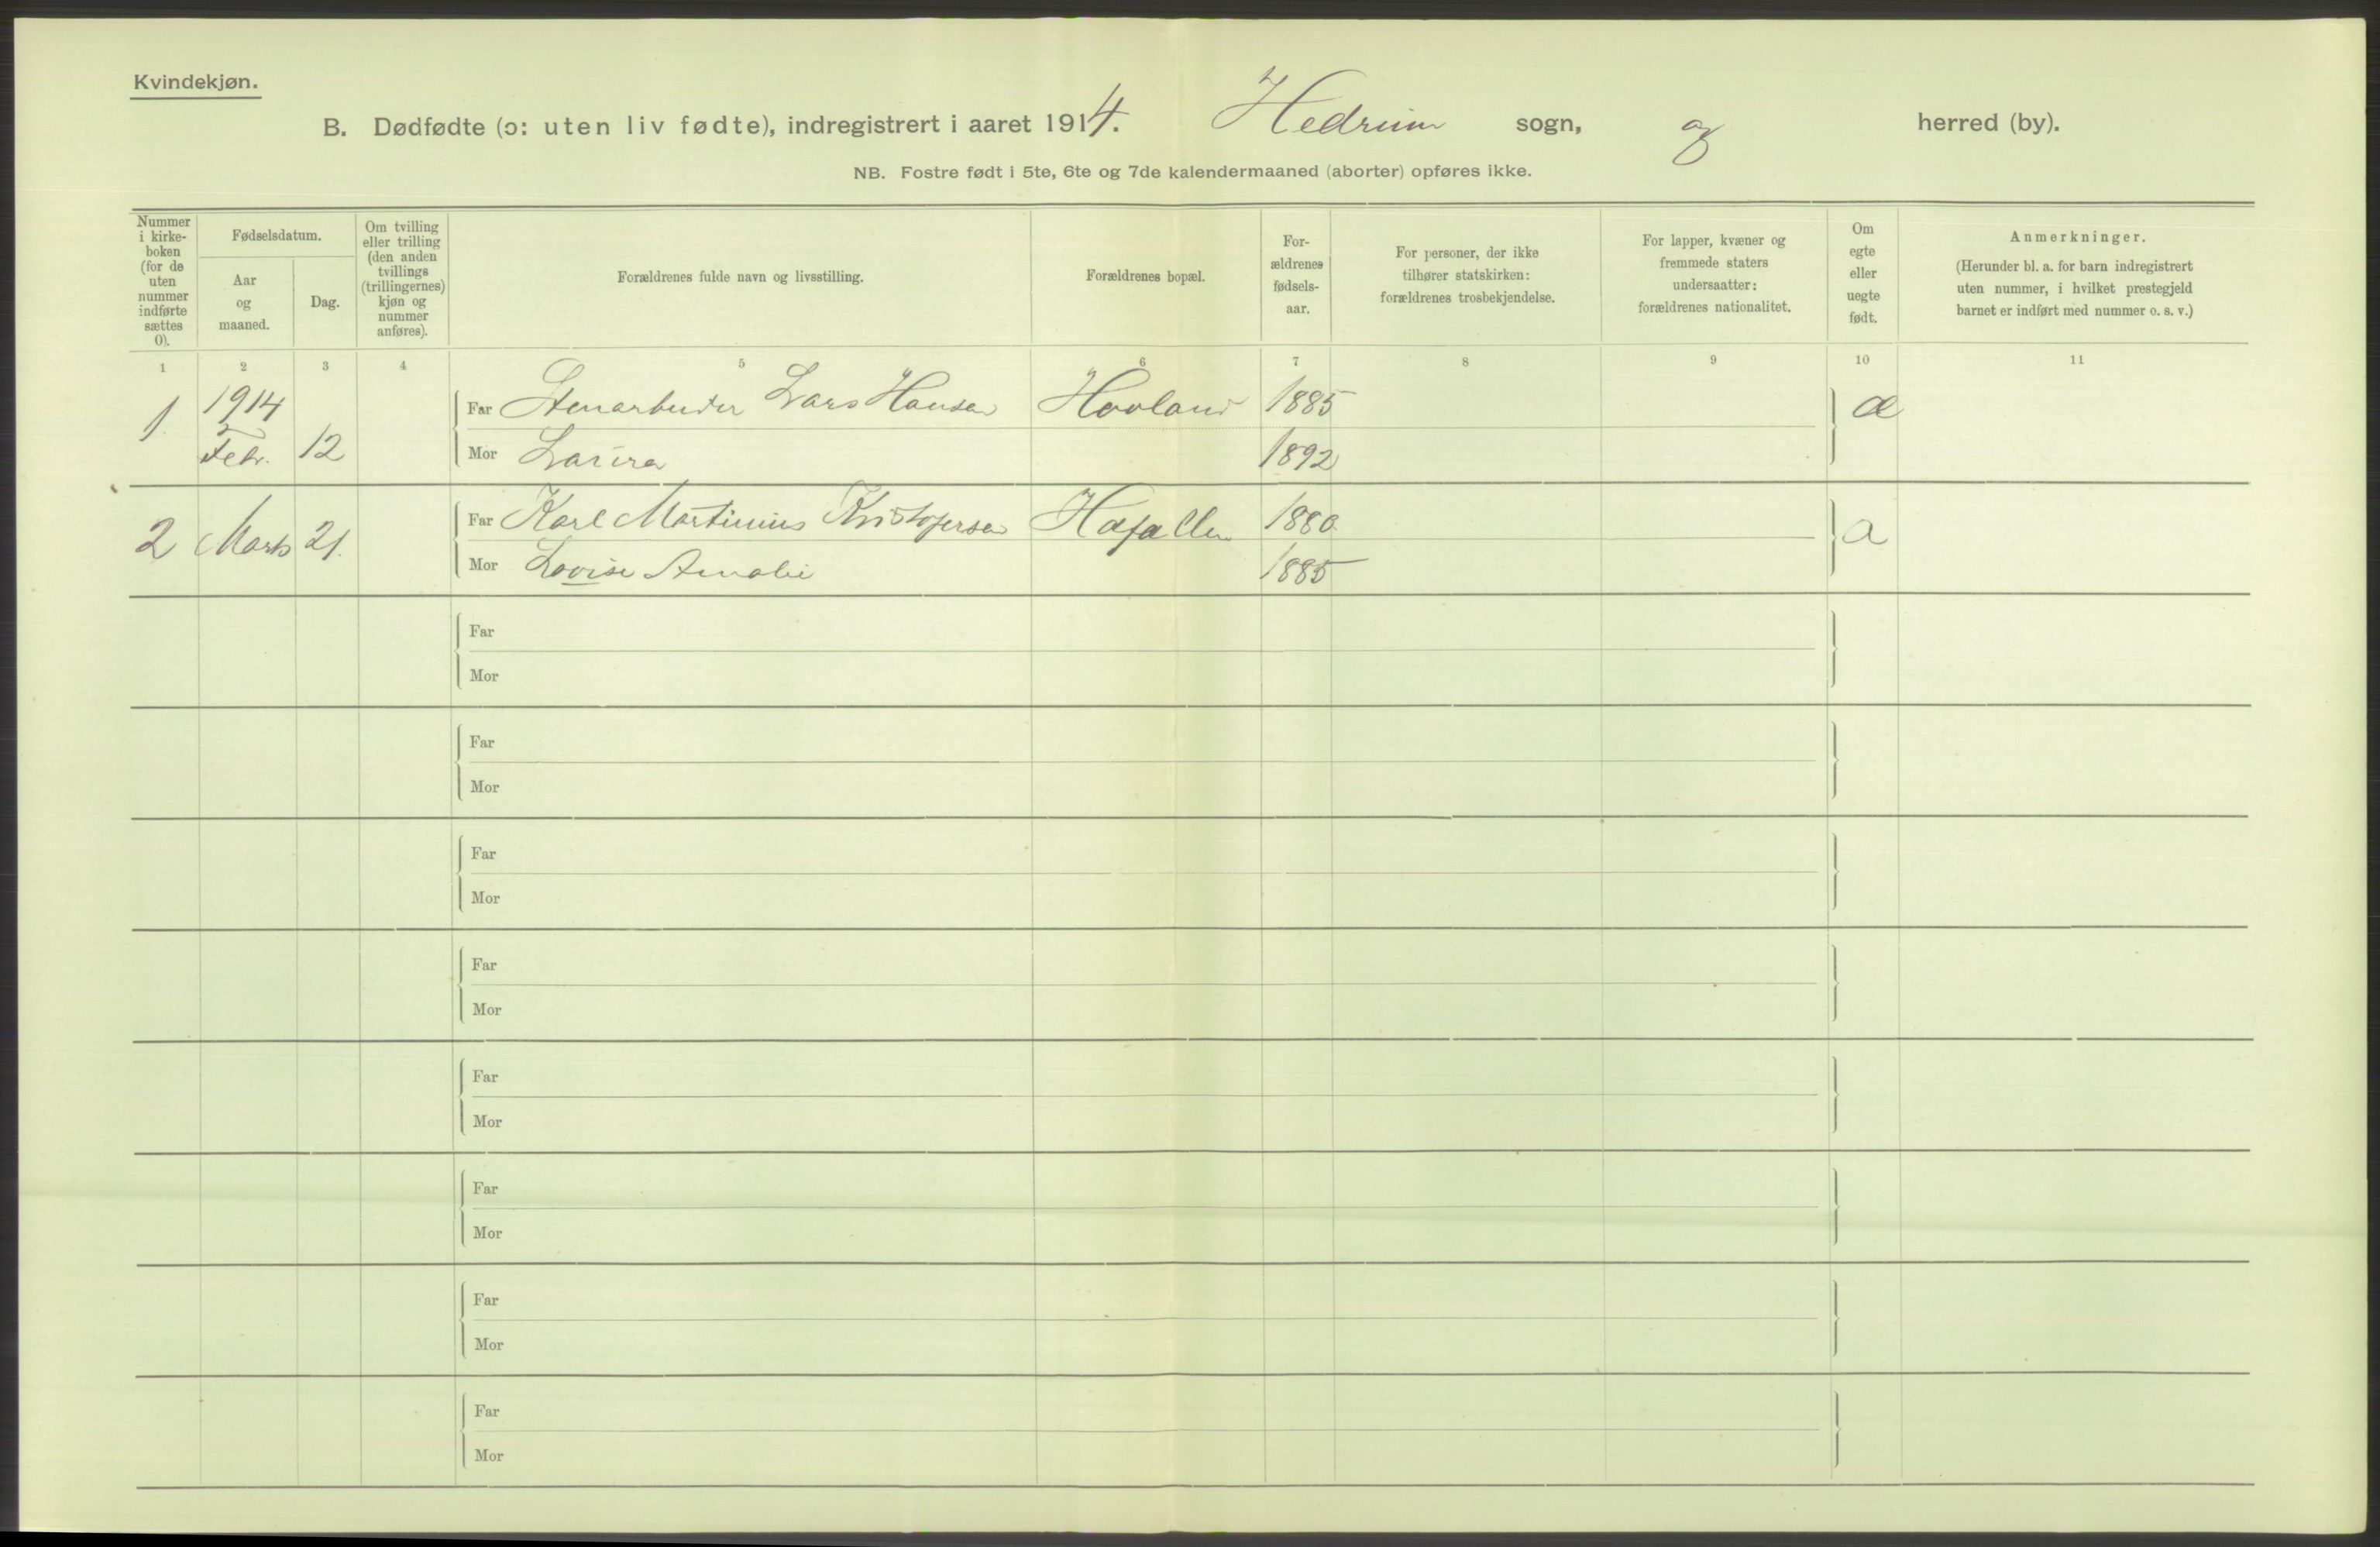 Kvindekjøn.
B. Dødfødte (ɔ: uten liv fødte), indregistrert i aaret 1914. Hedrum sogn, og herred (by).
NB. Fostre født i 5te, 6te og 7de kalendermaaned (aborter) opføres ikke.
Nummer i kirke- boken (for de uten nummer indførte sættes 0).
Fødselsdatum.
Aar og maaned.
Dag.
Om tvilling eller trilling (den anden tvillings (trillingernes) kjøn og nummer anføres).
Forældrenes fulde navn og livsstilling.
Forældrenes bopæl.
For- ældrenes fødsels- aar.
For personer, der ikke tilhører statskirken: forældrenes trosbekjendelse.
For lapper, kvæner og fremmede staters undersaatter: forældrenes nationalitet.
Om egte eller uegte født.
Anmerkninger.
(Herunder bl. a. for barn indregistrert uten nummer, i hvilket prestegjeld barnet er indført med nummer o. s. v.)
1 2 3 4 5 6 7 8 9 10 11
1 1914 Febr. 12 Far Stenarbeider Lars Hansen Hovland 1885 æ
Mor Laura 1892
2 Marts 21. Far Karl Martinius Kristofersen 1880
Mor Lovise Amalie 1885
Far
Mor
Far
Mor
Far
Mor
Far
Mor
Far
Mor
Far
Mor
Far
Mor
Far
Mor